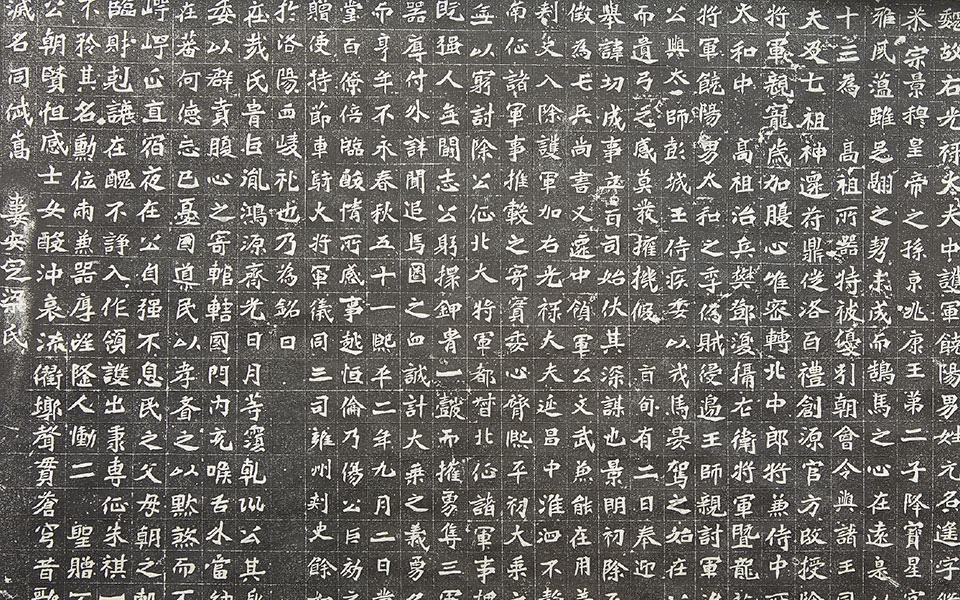 魏故右光祿大夫中護軍饒陽男姓元名遙字脩
宗景穆皇帝之孫京兆康王第二子降寶星宮
雅風溫雖是翺之契未成而鵠馬之心在遠臯
十三為 高祖所器特被優引朝會令與諸王同
夫及七祖神還苻鼎從洛百禮創源官方改授
將軍親寵歲加腹心唯密轉北中郎將兼侍中
太和中 高祖治兵樊鄧復攝右衛將軍暨龍
將軍饒陽男太和之季偽賊侵邊王師親討軍
公與太師彭城王侍疾委以戎馬晏駕之始在
而遺弓之感莫發擁機假 百旬有二日奉迎
舉諱切成事 百司始伏其深謀也景明初除
徵為七兵尚書又遷中領軍公文武兼能在用
刺史入除護軍加右光祿大夫延昌中淮泗不
南征諸軍事推轂之寄實委心膂熙平初大乘
無以窮討除公征北大將軍都督北征諸軍事
既强人無鬪志公躬擐鉀冑一鼓而摧勇雋三軍
器辱付外詳聞追馬圈之血誠計大乘之義勇
而享年不永春秋五十一熙平二年九月二日
堂百僚倍臨酸情所感事越恒倫乃傷公臣効
贈使持節車騎大將軍儀同三司雍州刺史餘
於洛陽西陵礼也乃為銘曰
在哉氏胄曰胤鴻源齊光日月等覆乾坤公其
委以群賁腹心之寄輨轄國門內充喉舌外當
在蕃何德忘已憂國導民以孝耆之以黙煞而不
崿崿正直宿夜在公自强不息民之父母朝之
臨財剋讓在醜不諍入作領護出秉專征朱祺
不矜其名勳位兩兼器厚望隆人慟二 聖贈
公朝賢怛感士女酸沖哀流衢壠聲貫蒼穹昔
滅名同傾嵩 妻安定梁氏